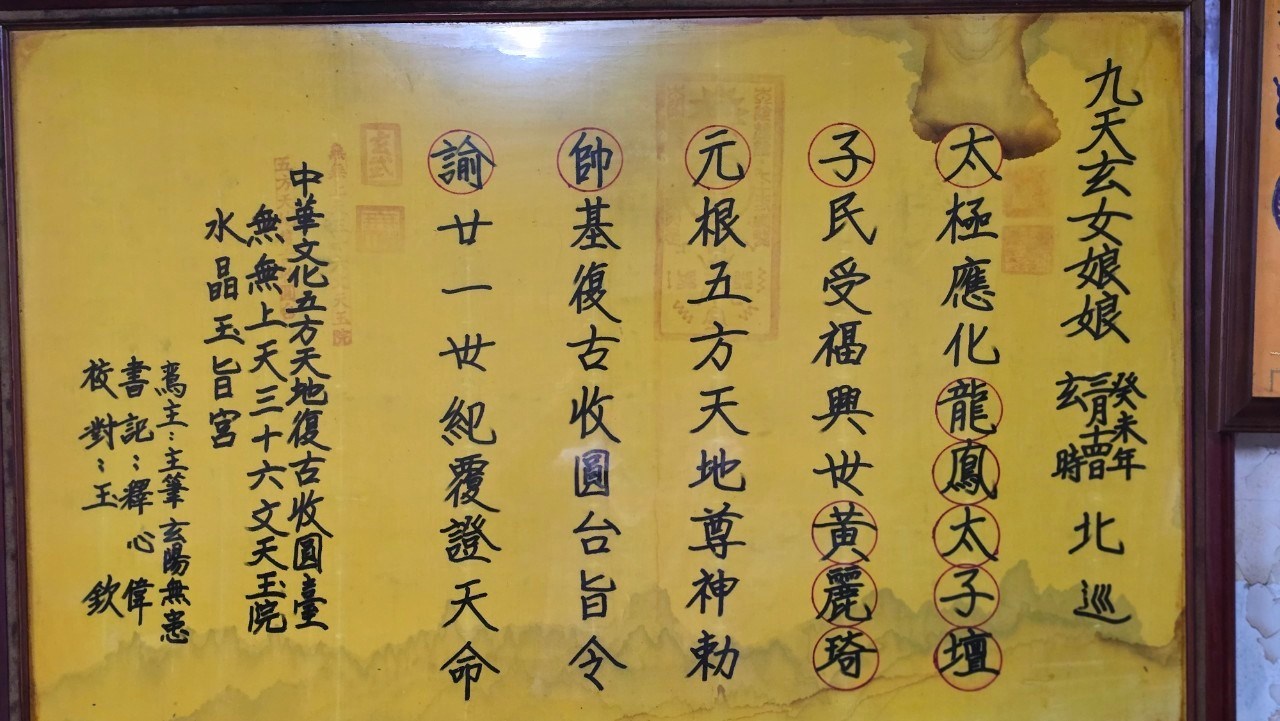 九天玄女娘娘 癸未年三月十四日玄時 北巡
太極應化龍鳳太子壇
子民受福興世黃麗琦
元根五方天地尊神勅
帥基復古收圓台旨令
諭廿一世紀覆證天命
中華文化五方天地復古收圓臺
無無上天三十六文天玉院
水晶玉旨宮
鸞主：主筆玄陽無患
書記：釋心偉
校對：玉欽
玄武